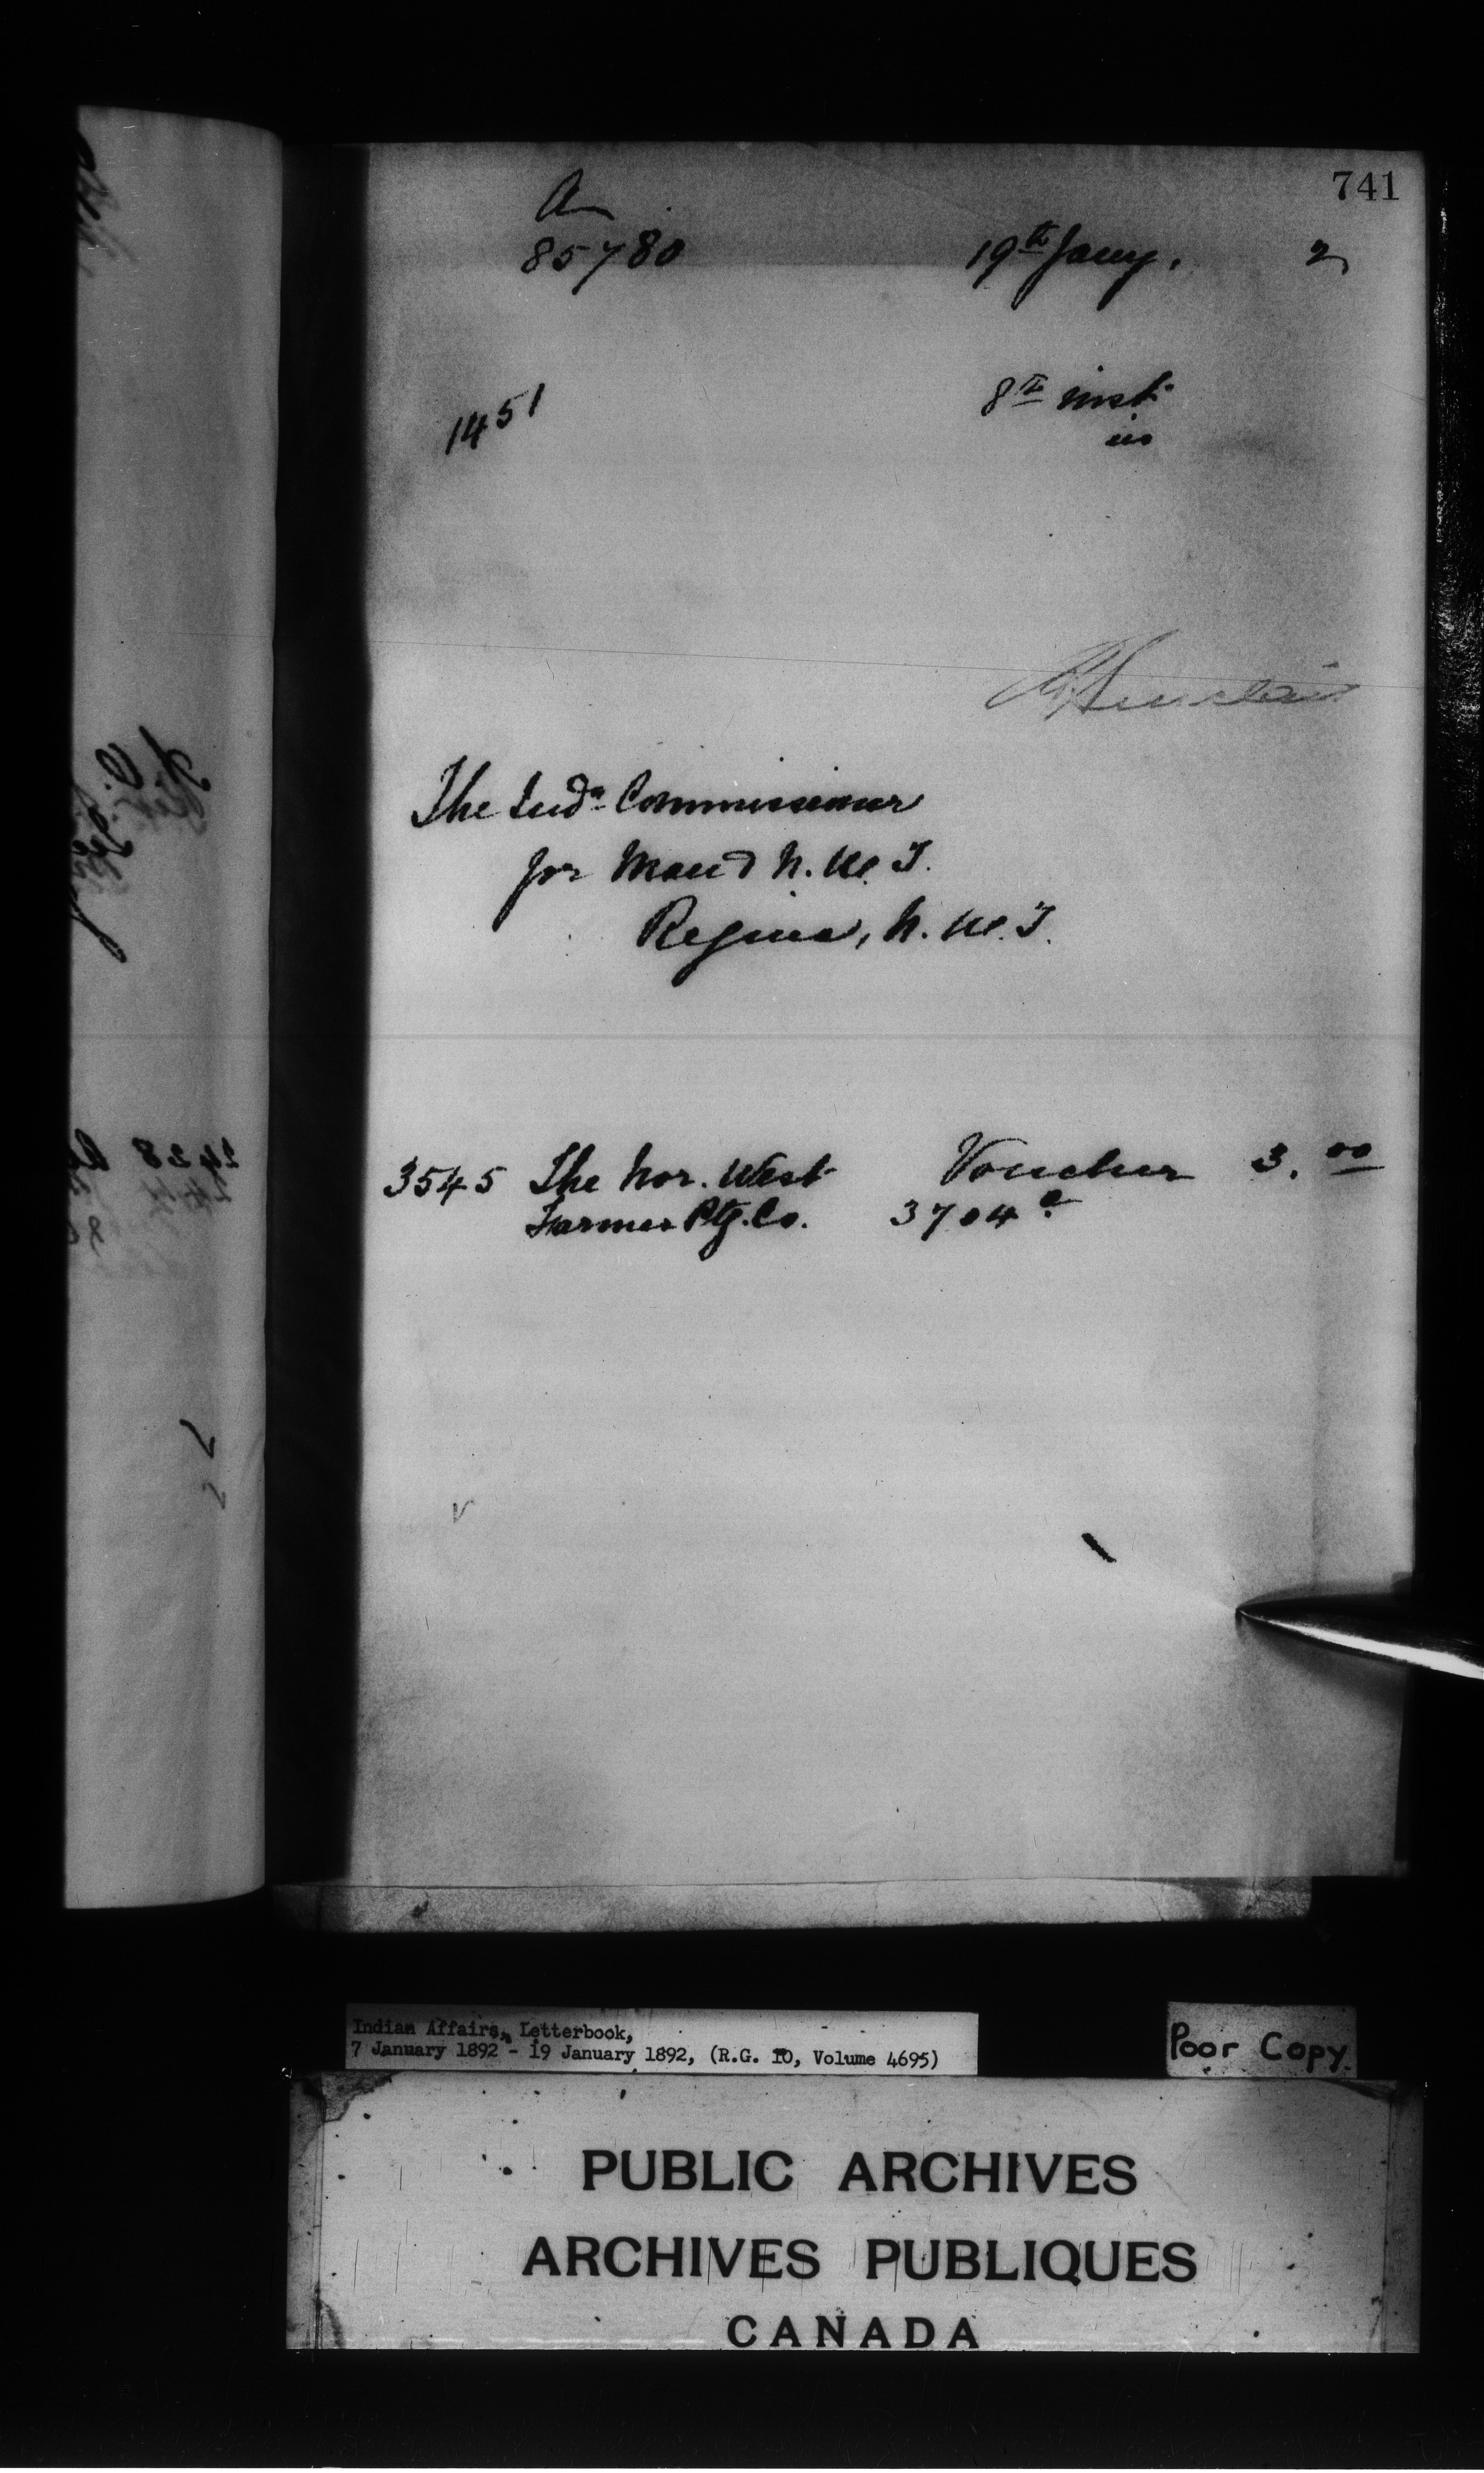 741
A
85780 19th Jany. 2
1451 8th inst
in
Sinclair
The Indn Commissioner
for Man & N.W.T.
Regina, N.W.T.
3545 The Nor. West Voucher 3.00
Farmer Ptg. Co. 3704
Indian Affairs, Letterbook,
7 January 1892 - 19 January 1892, (R.G. 10, Volume 4695)
Poor Copy.
PUBLIC ARCHIVES
ARCHIVES PUBLIQUES
CANADA